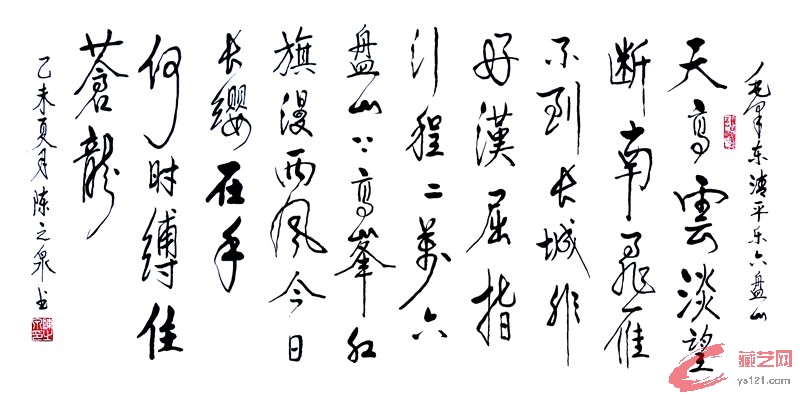 毛澤东清平乐六盘山
天高雲淡望
断南飛雁
不到长城非
好漢屈指
行程二萬六
盘山〻高峯红
旗漫西风今日
长缨在手
何时縛住
蒼龍
乙未夏月陈之泉书
藏艺网
ys121.com